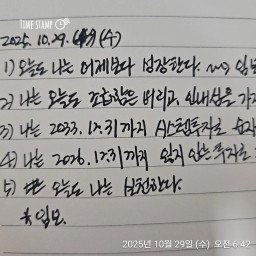 TIME STAMP
2025. 10. 29. (수)
1) 오늘도 나는 어제보다 성장한다.
2) 나는 오늘도 조급함은 버리고, 인내심을
3) 나는 2033. 12. 31까지
4) 나는 2026. 12. 31까지 잃지 않는 투자로
5) 오늘도 나는 실천한다.
2025년 10월 29일 (수) 오전 6:42